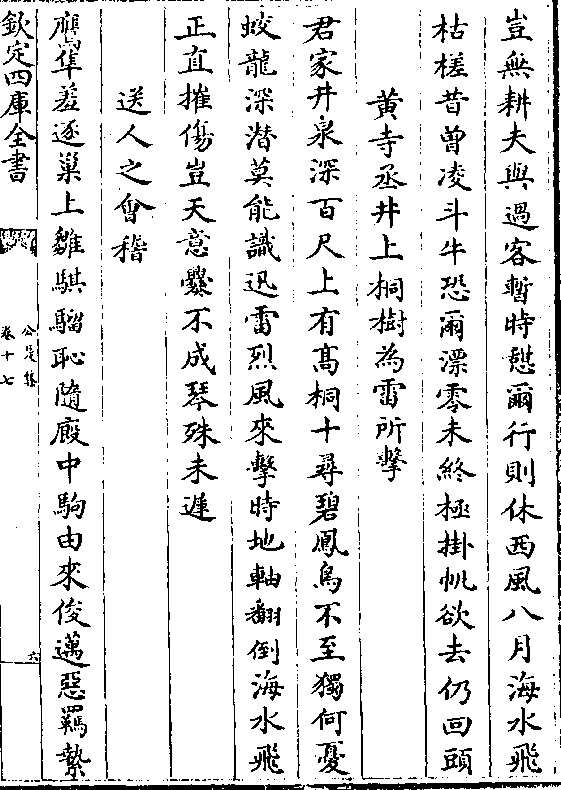 豈無耕夫與過客暫時憇爾行則休西風八月海水飛
枯槎昔曾凌斗牛恐爾漂零未終極掛帆欲去仍回頭
黄寺丞井上桐樹為雷所擊
君家井泉深百尺上有髙桐十尋碧鳳鳥不至獨何憂
蛟龍深潜莫能識迅雷烈風來擊時地軸翻倒海水飛
正直摧傷豈天意㸑不成琴殊未遲
送人之會稽
鷹隼羞逐巢上雛騏騮恥隨廄中駒由來俊邁惡羈縶
欽定四庫全書
公是集
卷十七
六